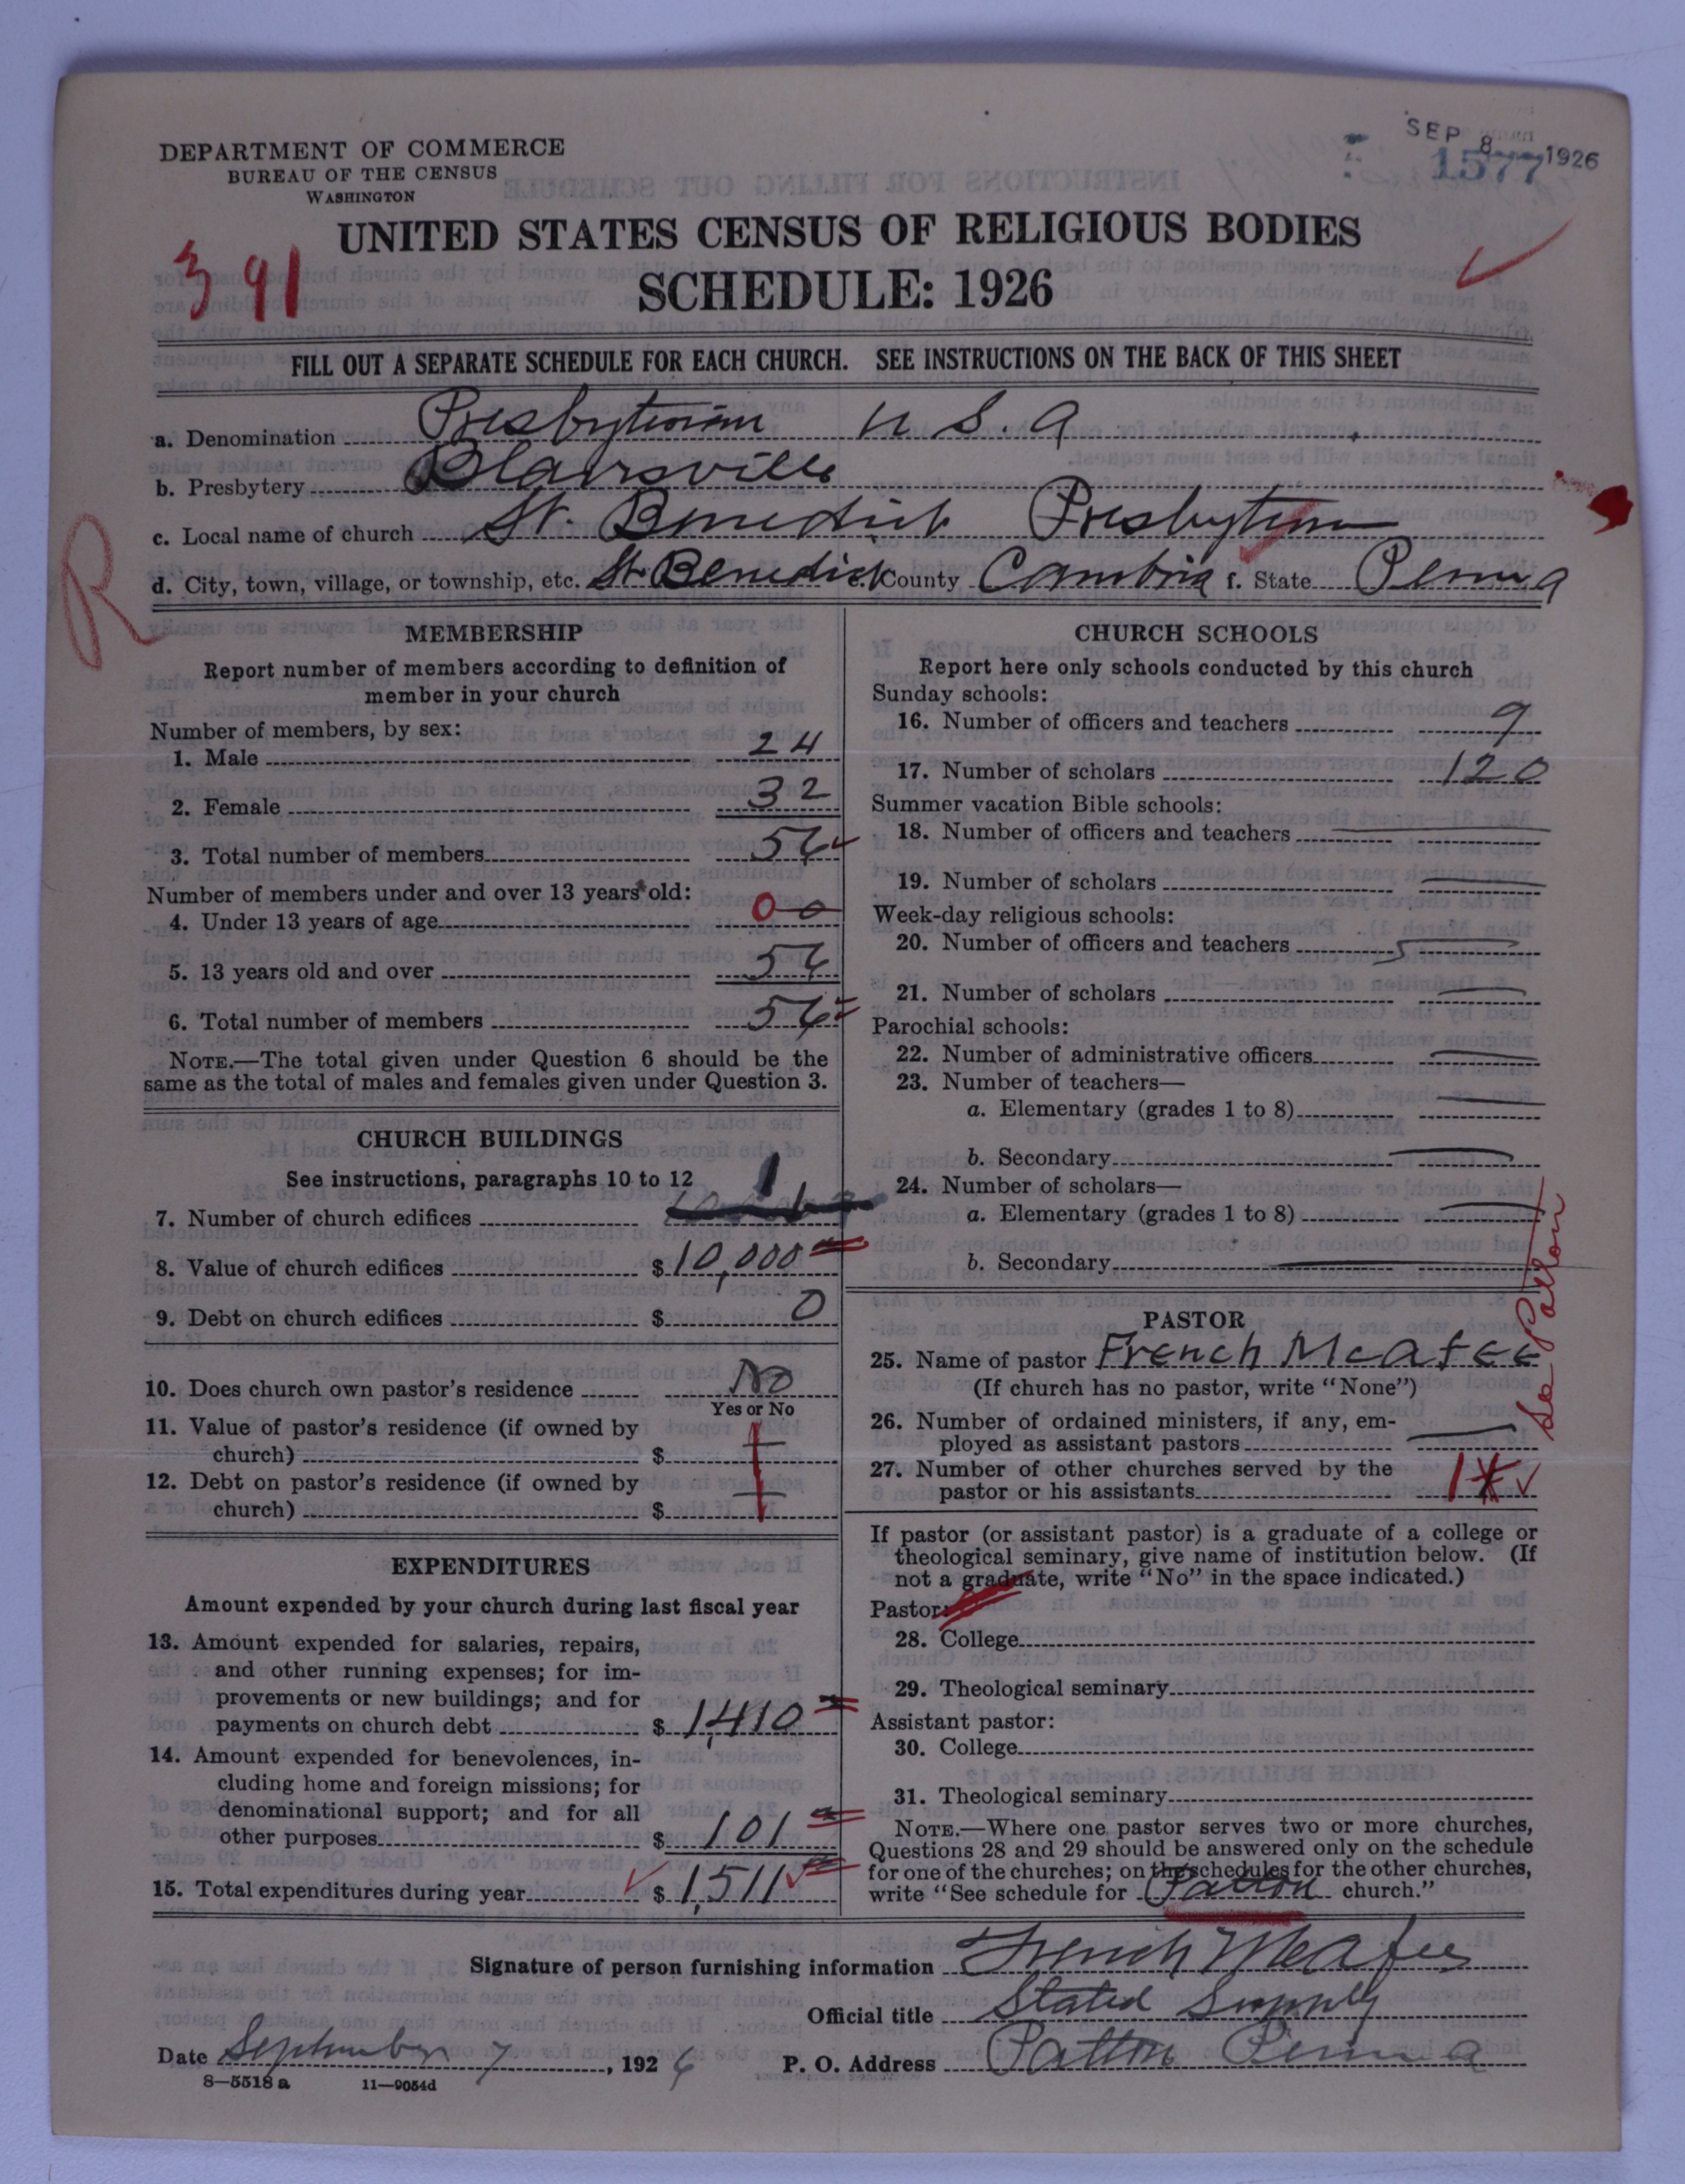 SEP 8 1926
1577
DEPARTMENT OF COMMERCE
BUREAU OF THE CENSUS
WASHINGTON
UNITED STATES CENSUS OF RELIGIOUS BODIES
391
SCHEDULE: 1926
FILL OUT A SEPARATE SCHEDULE FOR EACH CHURCH. SEE INSTRUCTIONS ON THE BACK OF THIS SHEET
a. Denomination Presbyterian U S. A
b. Presbytery Blairsville
c. Local name of church St. Benedict Presbyterian
R
d. City, town, village, or township, etc. St. Benedict e. County Cambria f. State Penna
MEMBERSHIP
Report number of members according to definition of
member in your church
Number of members, by sex:
1. Male 24
2. Female 32
3. Total number of members 56
Number of members under and over 13 years old:
4. Under 13 years of age 0 0
5. 13 years old and over 56
6. Total number of members 56
NOTE.—The total given under Question 6 should be the
same as the total of males and females given under Question 3.
CHURCH BUILDINGS
See instructions, paragraphs 10 to 12
7. Number of church edifices 1
8. Value of church edifices $ 10,000
9. Debt on church edifices $ 0
10. Does church own pastor's residence No
Yes or No
11. Value of pastor's residence (if owned by
church) $
12. Debt on pastor's residence (if owned by
church) $
EXPENDITURES
Amount expended by your church during last fiscal year
13. Amount expended for salaries, repairs,
and other running expenses; for im-
provements or new buildings; and for
payments on church debt $ 1,410
14. Amount expended for benevolences, in-
cluding home and foreign missions; for
denominational support; and for all
other purposes $ 101
15. Total expenditures during year $ 1,511
CHURCH SCHOOLS
Report here only schools conducted by this church
Sunday schools:
16. Number of officers and teachers 9
17. Number of scholars 120
Summer vacation Bible schools:
18. Number of officers and teachers
19. Number of scholars
Week-day religious schools:
20. Number of officers and teachers
21. Number of scholars
Parochial schools:
22. Number of administrative officers
23. Number of teachers—
a. Elementary (grades 1 to 8)
b. Secondary
24. Number of scholars—
a. Elementary (grades 1 to 8)
b. Secondary
See Patton
PASTOR
25. Name of pastor French McAfee
(If church has no pastor, write "None")
26. Number of ordained ministers, if any, em-
ployed as assistant pastors
27. Number of other churches served by the
pastor or his assistants 1
If pastor (or assistant pastor) is a graduate of a college or
theological seminary, give name of institution below. (If
not a graduate, write "No" in the space indicated.)
Pastor:
28. College
29. Theological seminary
Assistant pastor:
30. College
31. Theological seminary
NOTE.—Where one pastor serves two or more churches,
Questions 28 and 29 should be answered only on the schedule
for one of the churches; on the schedules for the other churches,
write "See schedule for Patton church."
Signature of person furnishing information French McAfee
Official title Stated Supply
Date September 7, 1926 P. O. Address Patton Penna
8—5518 a 11—9054d